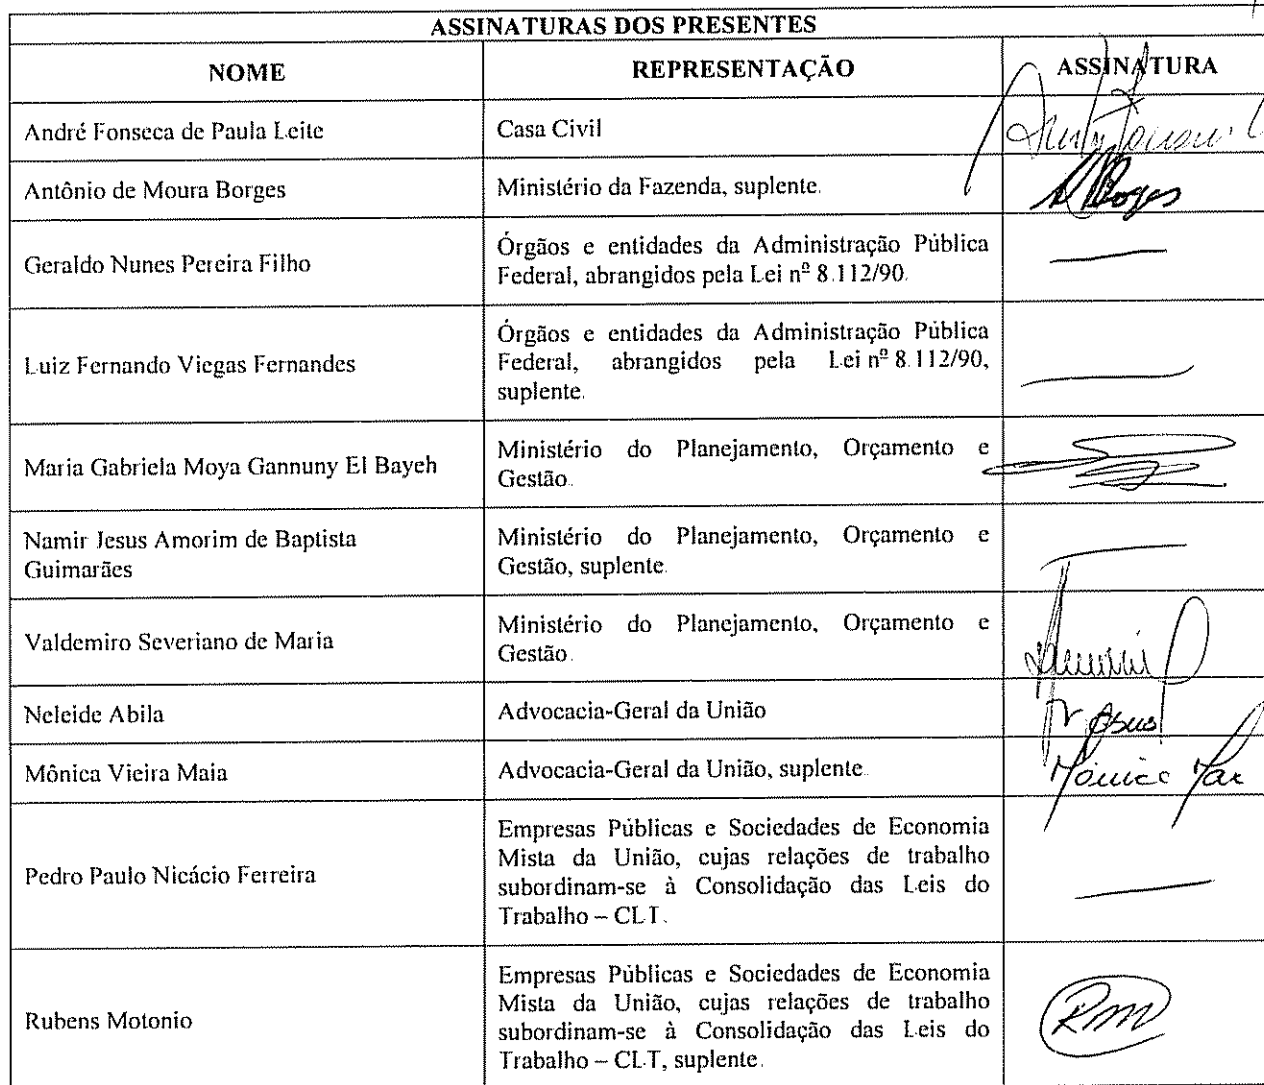 ASSINATURAS DOS PRESENTES
NOME REPRESENTAÇÃO ASSINATURA
André Fonseca de Paula Leite Casa Civil
Antônio de Moura Borges Ministério da Fazenda, suplente. Borges
Geraldo Nunes Pereira Filho
Órgãos e entidades da Administração Pública
Federal, abrangidos pela Lei nº 8.112/90.
Luiz Fernando Viegas Fernandes
Órgãos e entidades da Administração Pública
Federal, abrangidos pela Lei nº 8.112/90,
suplente.
Maria Gabriela Moya Gannuny El Bayeh
Ministério do Planejamento, Orçamento e
Gestão.
Namir Jesus Amorim de Baptista
Guimarães
Ministério do Planejamento, Orçamento e
Gestão, suplente.
Valdemiro Severiano de Maria
Ministério do Planejamento, Orçamento e
Gestão.
Neleide Abila Advocacia-Geral da União
Mônica Vieira Maia Advocacia-Geral da União, suplente.
Pedro Paulo Nicácio Ferreira
Empresas Públicas e Sociedades de Economia
Mista da União, cujas relações de trabalho
subordinam-se à Consolidação das Leis do
Trabalho – CLT.
Rubens Motonio
Empresas Públicas e Sociedades de Economia
Mista da União, cujas relações de trabalho
subordinam-se à Consolidação das Leis do
Trabalho – CLT, suplente.
RM